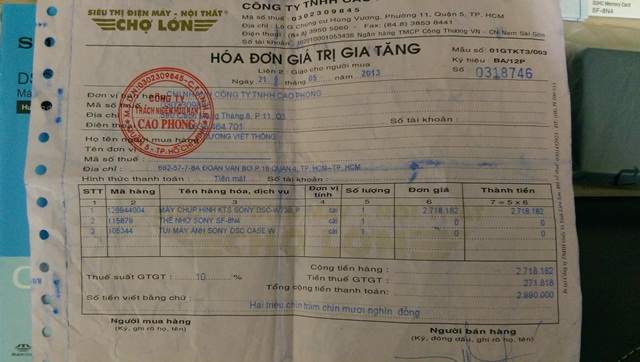 SIÊU THỊ ĐIỆN MÁY - NỘI THẤT
CHỢ LỚN
CÔNG TY TNHH CAO
Mã số thuế : 0302309845
Địa chỉ : Lô G Chung cư Hùng Vương, Phường 11, Quận 5, TP. HCM
Điện thoại : (84.8) 3950 5060 - Fax: (84.8) 3853 8441
Số tài khoản : 102010001053436 Ngân hàng TMCP Công Thương VN - CN Nam Sài Gòn
SDHC Memory Card
SF-8N4
HÓA ĐƠN GIÁ TRỊ GIA TĂNG
Liên 2 : Giao cho người mua
Ngày 21 tháng 05 năm 2013
Mẫu số: 01GTKT3/003
Ký hiệu : BA/12P
Số 0318746
Đơn vị bán CHI NHÁNH CÔNG TY TNHH CAO PHONG
Mã số
Địa chỉ Tháng 8, P.11, Q3
Điện thoại 464.701
Số tài khoản :
CÔNG TY
TRÁCH NHIỆM HỮU HẠN
CAO PHONG
Họ tên người mua hàng DƯƠNG VIẾT THÔNG
Tên đơn vị
Mã số thuế :
Địa chỉ : 682-57-7-8A ĐOÀN VĂN BƠ P.16 QUẬN 4, TP. HCM-TP. HCM
Hình thức thanh toán : Tiền mặt Số tài khoản :
STT Mã hàng Tên hàng hóa, dịch vụ Đơn vị tính Số lượng Đơn giá Thành tiền
1 2 3 4 5 6 7 = 5 x 6
1 MÁY CHỤP HÌNH KTS SONY cái 1 2.718.182 2.718.182
2 115879 THẺ NHỚ SONY SF-8N4 cái 1 0 0
3 105344 TÚI MÁY ẢNH SONY DSC CASE W cái 1 0 0
Cộng tiền hàng : 2.718.182
Thuế suất GTGT : 10 % Tiền thuế GTGT : 271.818
Tổng cộng tiền thanh toán: 2.990.000
Số tiền viết bằng chữ : Hai triệu chín trăm chín mươi nghìn đồng
Người mua hàng Người bán hàng
(Ký, ghi rõ họ, tên) (Ký, đóng dấu, ghi rõ họ, tên)